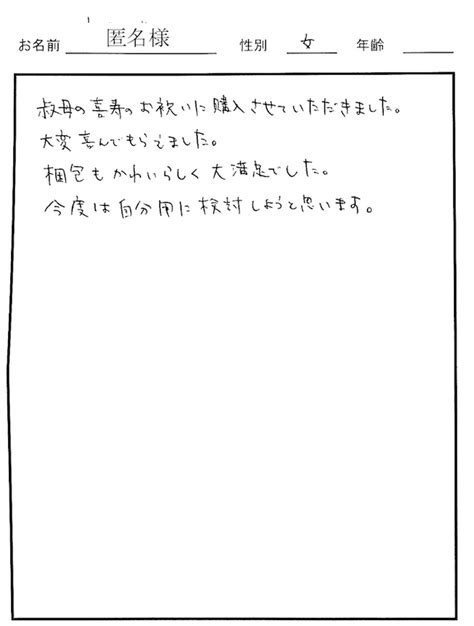 お名前 匿名様 性別 女 年齢
叔母の喜寿のお祝いに購入させていただきました。
大変喜んでもらえました。
梱包もかわいらしく大満足でした。
今度は自分用に検討しようと思います。